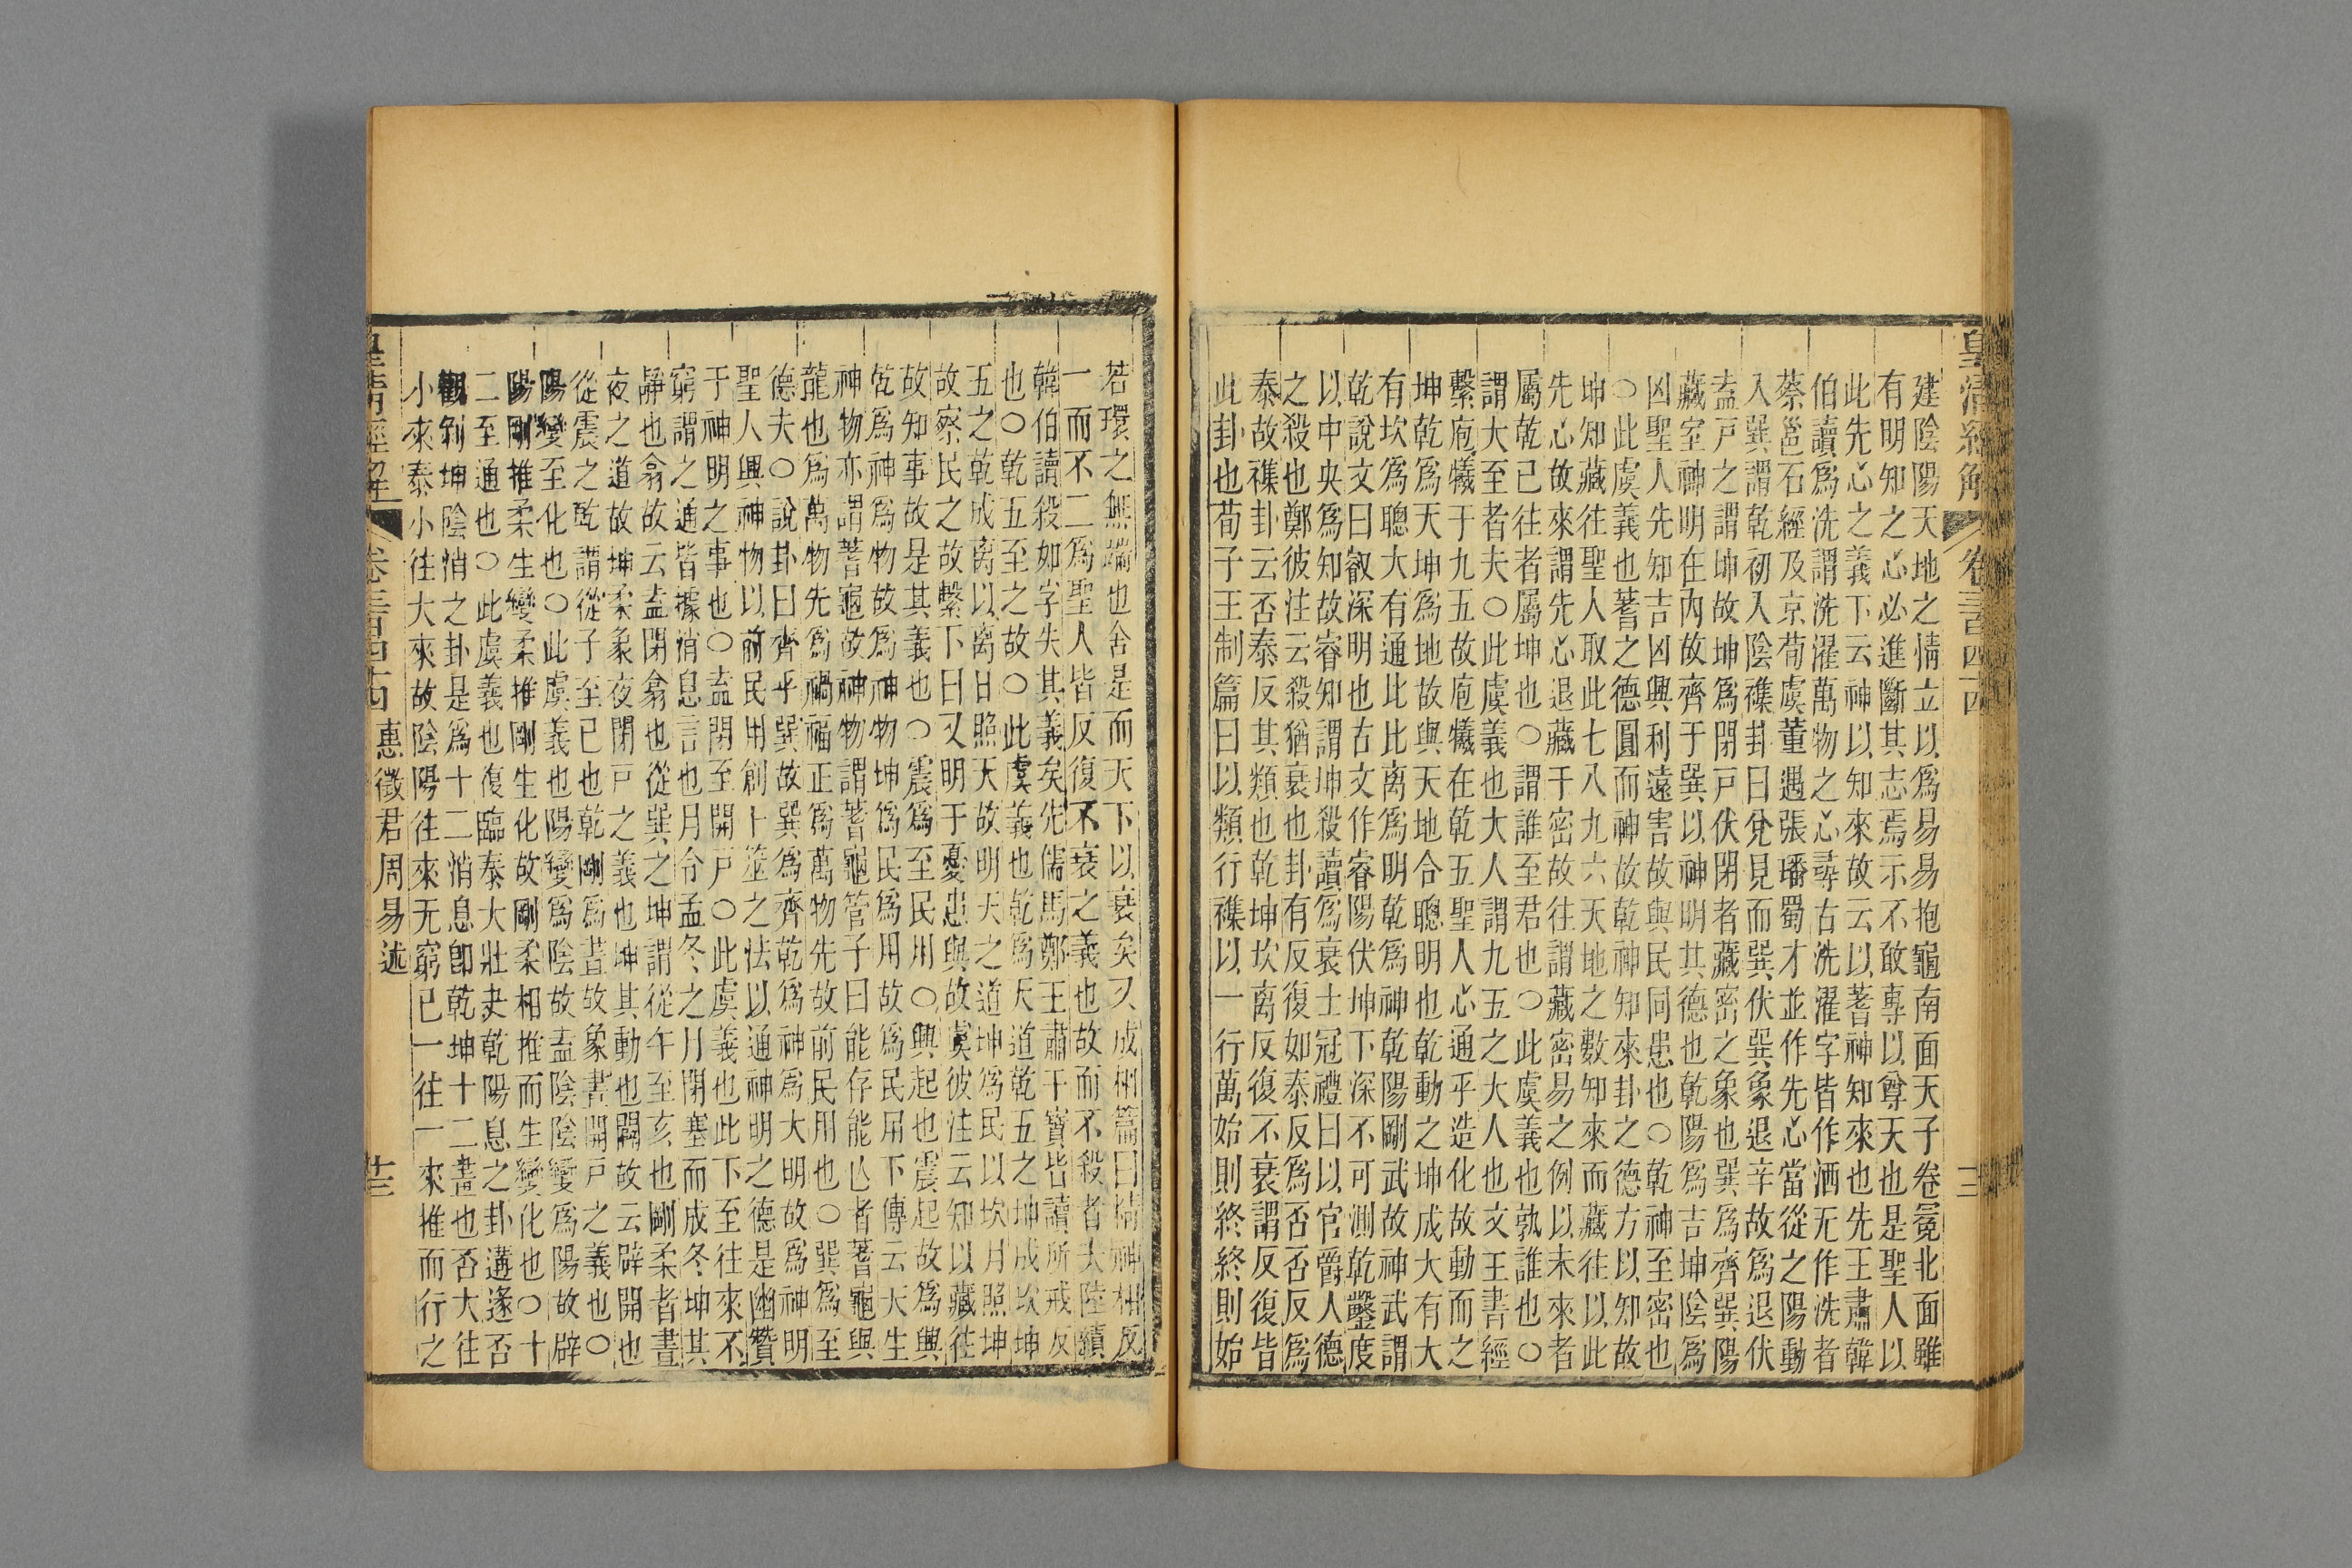 皇清經解 卷三百四十四
建陰陽天地之情立以爲易易抱龜南面天子卷冕北面雖
有明知之心必進斷其志焉示不敢專以尊天也是聖人以
此先心之義下云神以知來故云以蓍神知來也先王肅韓
伯讀爲洗謂洗濯萬物之心尋古洗濯字皆作洒无作洗者
蔡邕石經及京荀虞董遇張璠蜀才並作先心當從之陽動
入巽謂乾初入陰襍卦曰兌見而巽伏巽象退辛故爲退伏
盍戸之謂坤故坤爲閉戸伏閉者藏密之象也巽爲齊巽陽
藏室神明在內故齊于巽以神明其德也乾陽爲吉坤陰爲
凶聖人先知吉凶興利遠害故與民同患也〇乾神至密也
〇此虞義也蓍之德圓而神故乾神知來卦之德方以知故
坤知藏往聖人取此七八九六天地之數知來而藏往以此
先心故來謂先心退藏于密故往謂藏密易之例以未來者
屬乾已往者屬坤也〇謂誰至君也〇此虞義也孰誰也〇
謂大至者夫〇此虞義也大人謂九五之大人也文王書經
繫庖犧于九五故庖犧在乾五聖人心通乎造化故動而之
坤乾爲天坤爲地故與天地合聰明也乾動之坤成大有大
有坎爲聰大有通比比离爲明乾爲神乾陽剛武故神武謂
乾說文曰叡深明也古文作睿陽伏坤下深不可測乾鑿度
以中央爲知故睿知謂坤殺讀爲衰士冠禮曰以官爵人德
之殺也鄭彼注云殺猶衰也卦有反復如泰反爲否否反爲
泰故襍卦云否泰反其類也乾坤坎离反復不衰謂反復皆
此卦也荀子王制篇曰以類行襍以一行萬始則終終則始
若環之無端也舍是而天下以衰矣又成相篇曰精神相反
一而不二爲聖人皆反復不衰之義也故而不殺者大陸績
韓伯讀殺如字失其義矣先儒馬鄭王肅干寶皆讀所戒反
也〇乾五至之故〇此虞義也乾爲天道乾五之坤成坎坤
五之乾成离以离日照天故明天之道坤爲民以坎月照坤
故察民之故繫下曰又明于憂患與故虞彼注云知以藏往
故知事故是其義也〇震爲至民用〇興起也震起故爲興
乾爲神爲物故爲神物坤爲民爲用故爲民用下傳云天生
神物亦謂蓍龜故神物謂蓍龜管子曰能存能亾者蓍龜與
龍也爲萬物先爲禍福正爲萬物先故前民用也〇巽爲至
德夫〇說卦曰齊乎巽故巽爲齊乾爲神爲大明故爲神明
聖人興神物以前民用創卜筮之法以通神明之德是幽贊
于神明之事也〇盍閉至開戸〇此虞義也此下至往來不
窮謂之通皆據消息言也月令孟冬之月閉塞而成冬坤其
靜也翕故云盍閉翕也從巽之坤謂從午至亥也剛柔者晝
夜之道故坤柔象夜閉戸之義也坤其動也闢故云辟開也
從震之乾謂從子至巳也乾剛爲晝故象晝開戸之義也〇
陽變至化也〇此虞義也陽變爲陰故盍陰陰變爲陽故辟
陽剛推柔生變柔推剛生化故剛柔相推而生變化也〇十
二至通也〇此虞義也復臨泰大壯夬乾陽息之卦遘遂否
觀剝坤陰消之卦是爲十二消息卽乾坤十二畫也否大往
小來泰小往大來故陰陽往來无窮已一往一來推而行之
卷三百四十四 惠徵君周易述